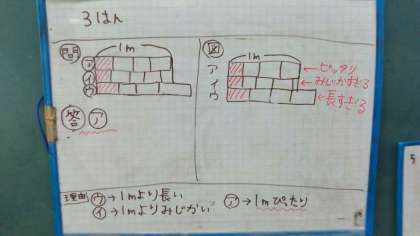 3はん
問
1m
ア
イ
ウ
答 ア
図
1m
ア ←ピッタリ
イ ←みじかすぎる
ウ ←長すぎる
理由 ウ→1mより長い
イ→1mよりみじかい
ア→1mぴったり
5